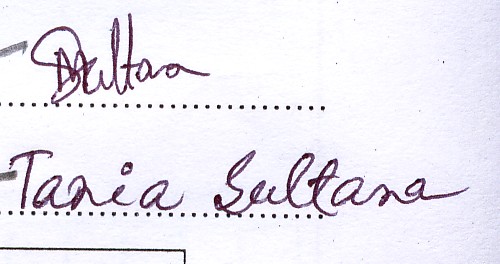 Sultana
Tania Sultana